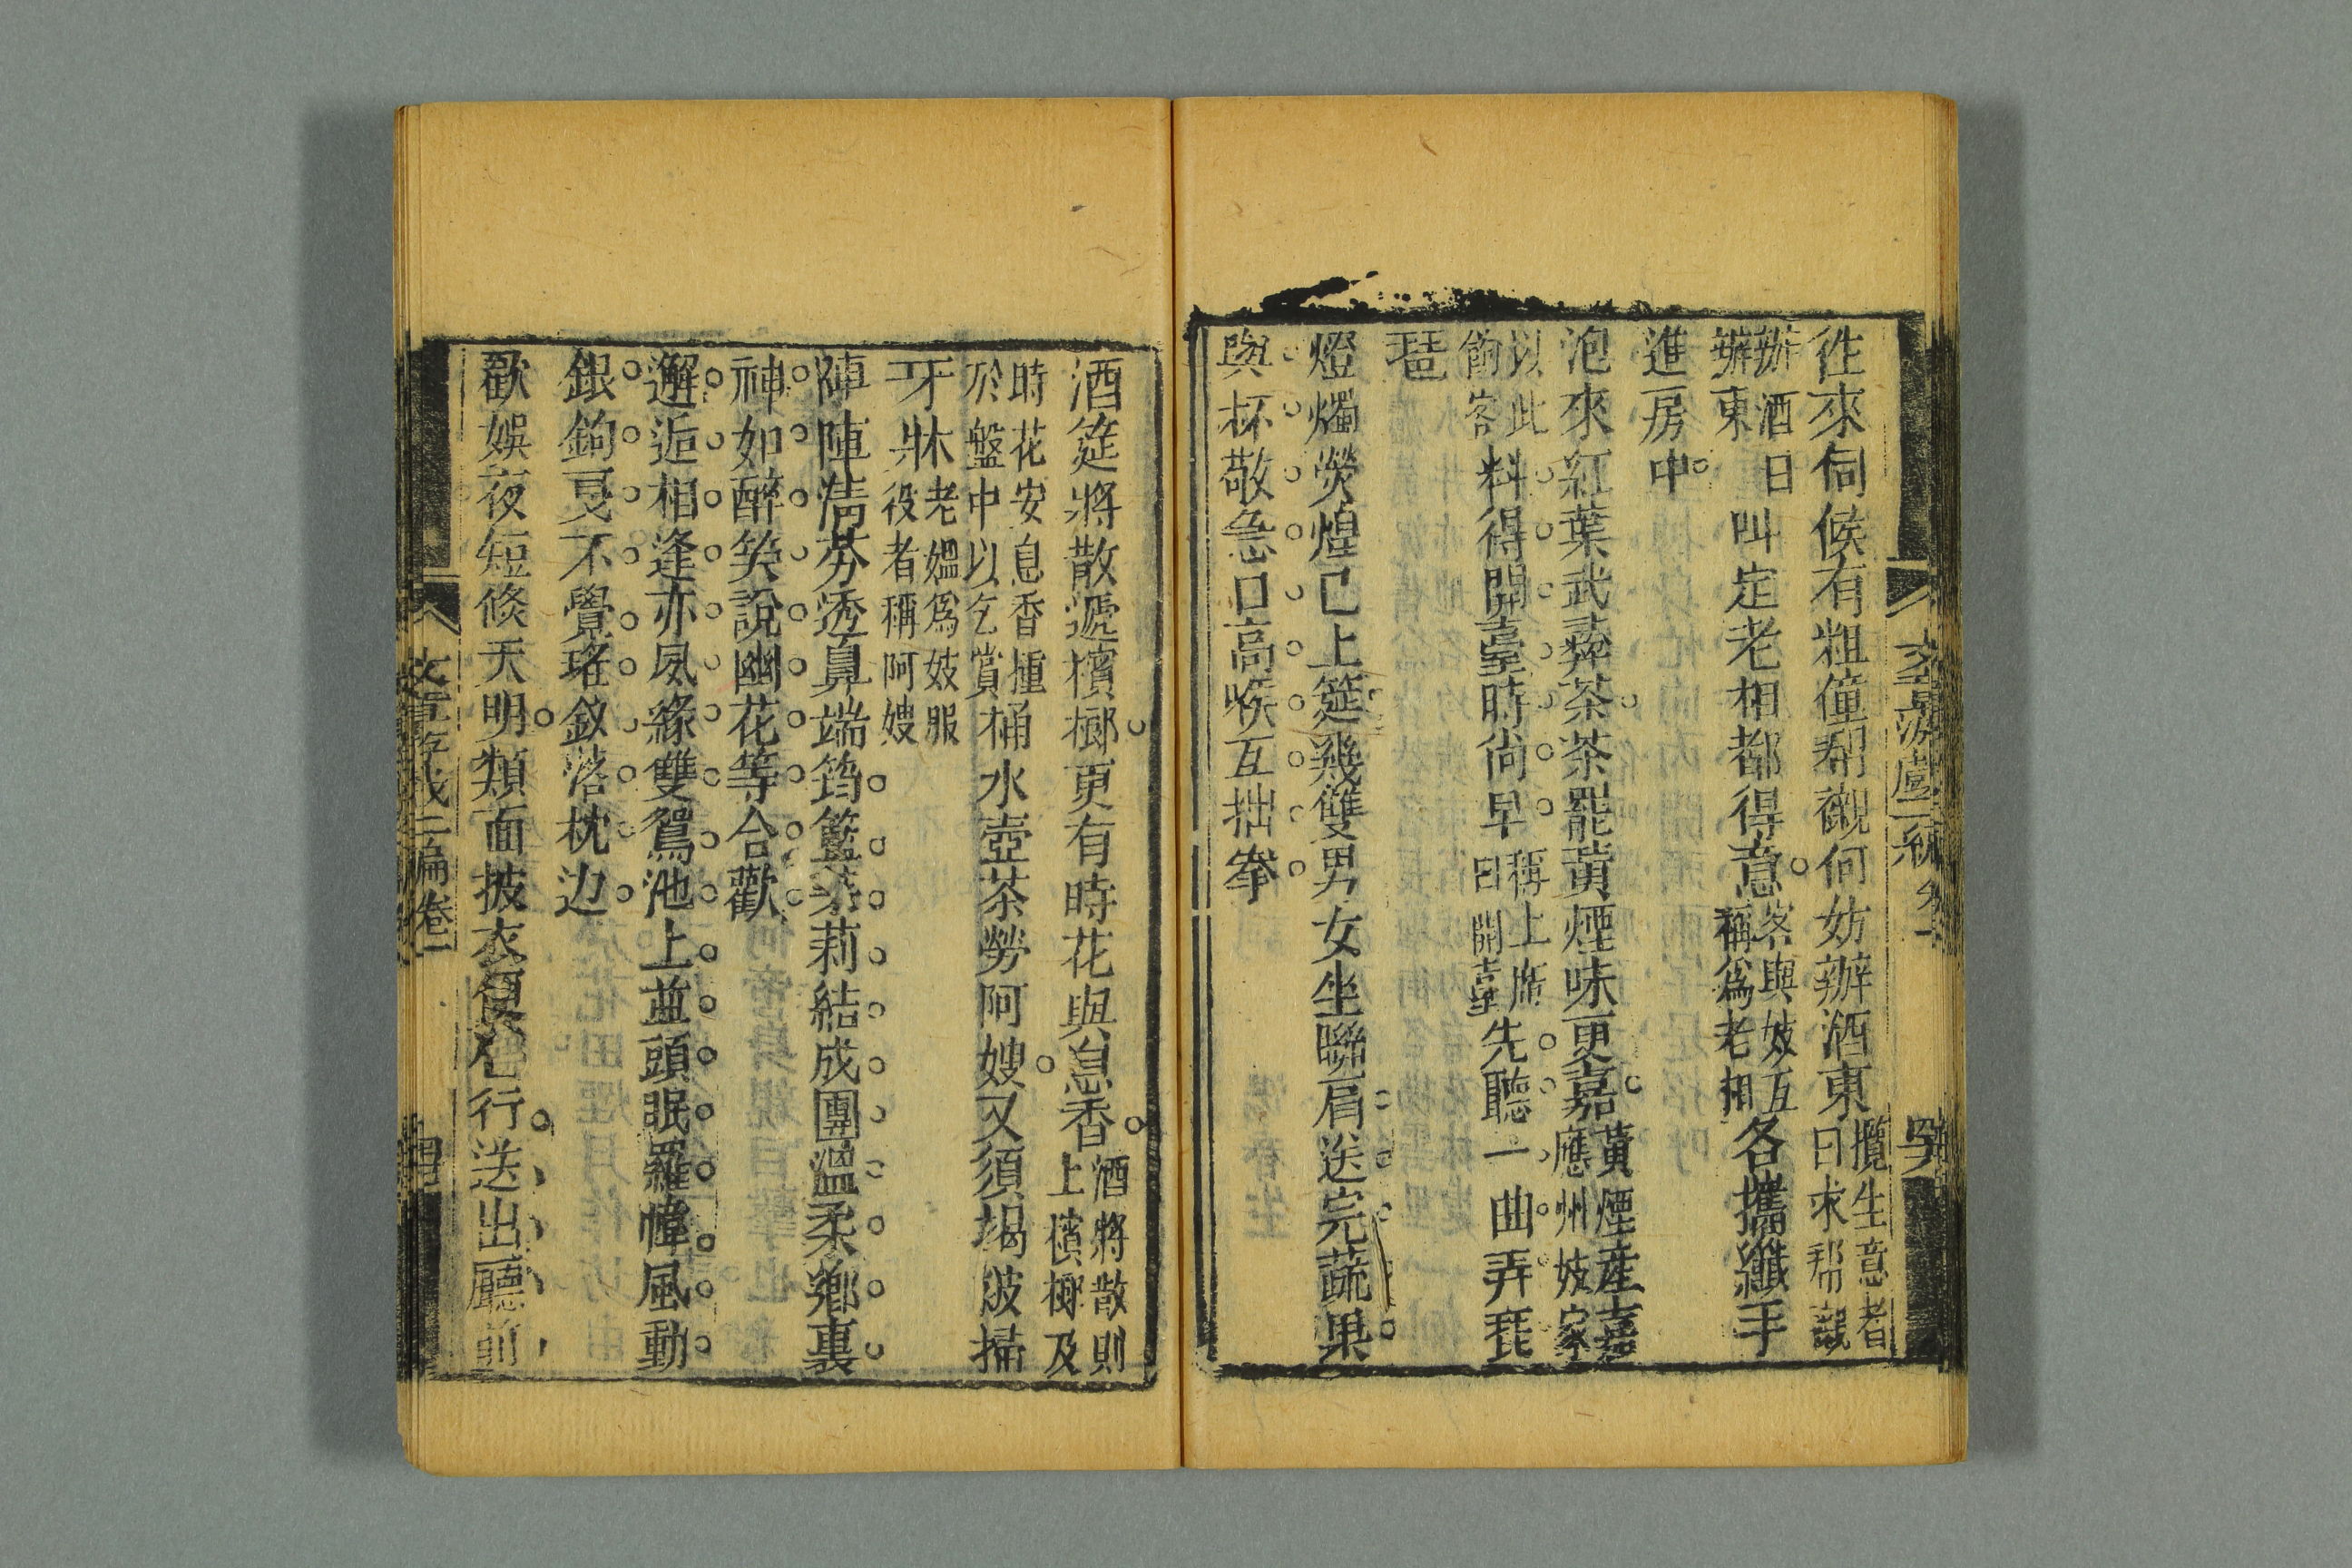 徃來伺候有粗僮帮襯何妨辦酒東攬生意者曰求帮襯
辦酒曰辦東叫定老相都得意客與妓互稱爲老相各攜纖手
進房中
泡來紅葉武彛茶茶罷黃煙味更嘉黃煙產嘉應州妓家
以此餉客料得開臺時尚早稱上席曰開臺先聽一曲弄琵
琶
燈燭熒煌已上筵幾雙男女坐聯肩送完蔬果
與杯敬急口高喉互拙拳
酒筵將散遞檳榔更有時花與息香酒將散則上檳榔及
時花安息香於盤中以乞賞桶水壺茶勞阿嫂又須揭被掃
牙牀老媼爲妓服役者稱阿嫂
陣陣清芬透鼻端筠籃茉莉結成團溫柔鄉裏
神如醉笑說幽花等合歡
邂逅相逢亦夙緣雙鴛池上並頭眠羅幃風動
銀鉤戛不覺瑤釵落枕边
歡娛夜短倐天明類面披衣便行送出廳前
二編卷一